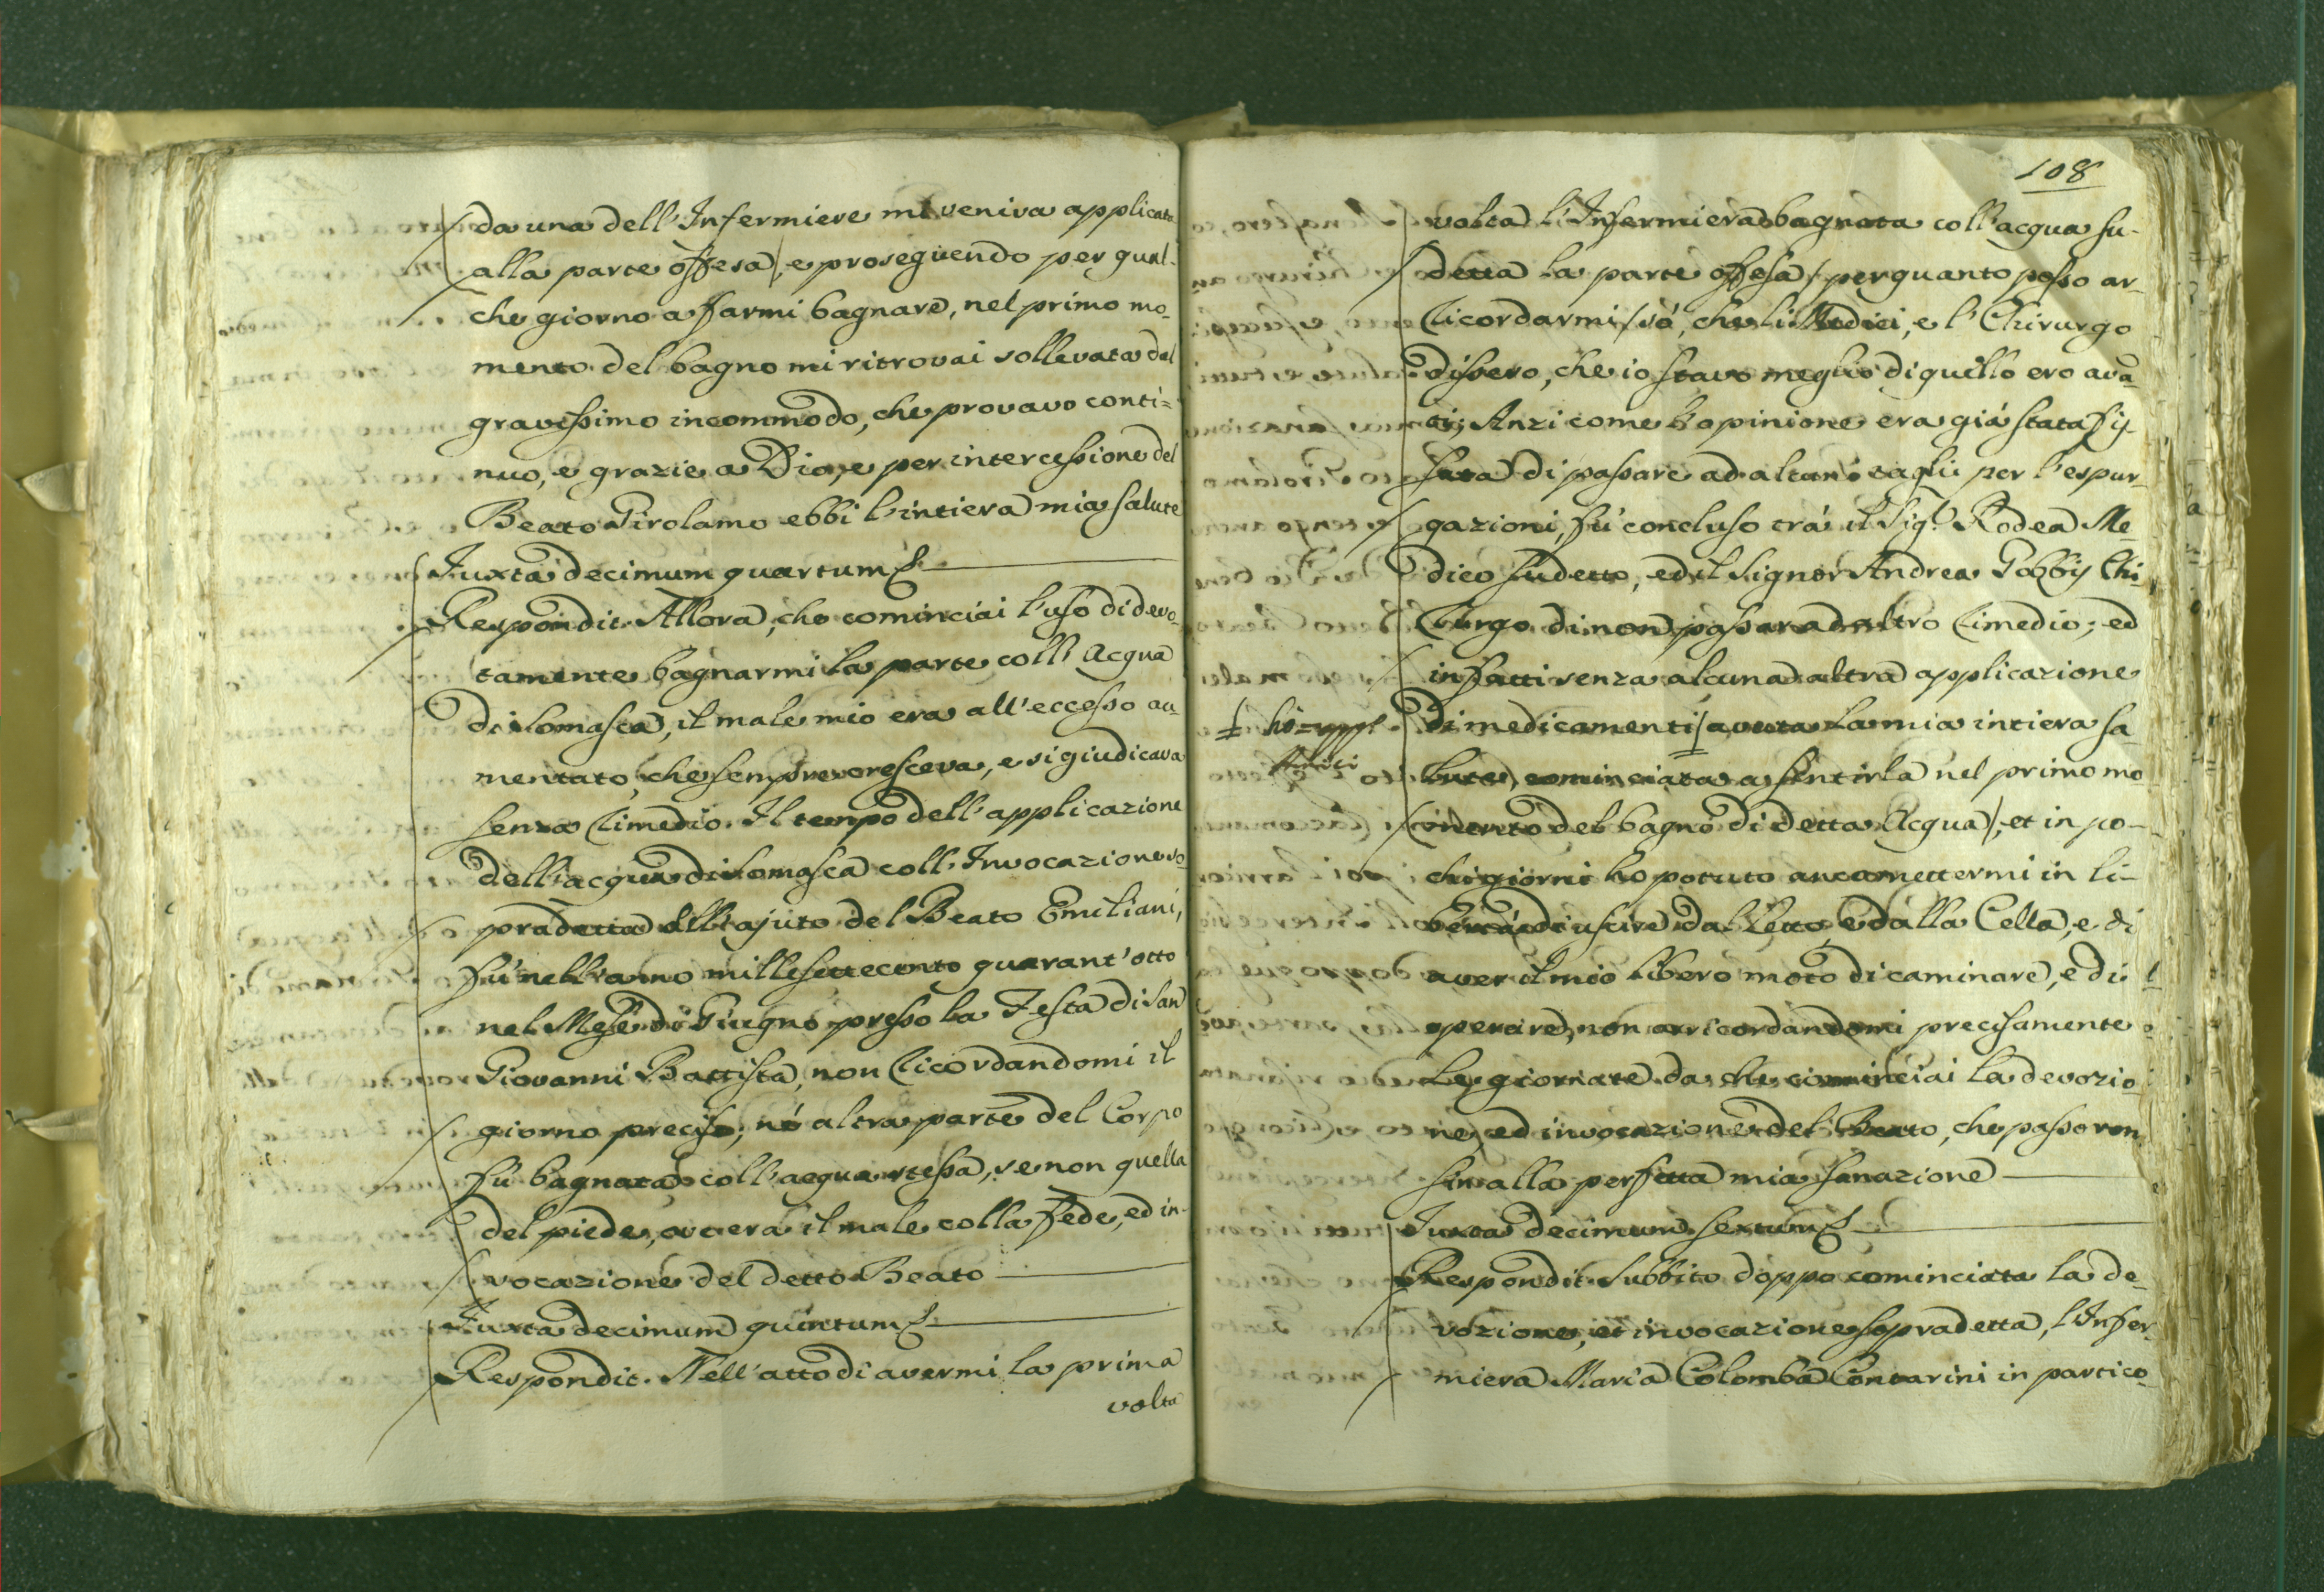 da una dell'Infermiere mi veniva applicata
alla parte offesa, e proseguendo per qual-
che giorno a farmi bagnare, nel primo mo-
mento del bagno mi ritrovai sollevata dal
gravissimo incommodo, che provavo conti=
nuo, e grazie a Dio, e per intercessione del
Beato Girolamo ebbi l'intiera mia salute
Juxta decimum quartum
Respondit. Allora, che cominciai l'uso di devo-
tamente bagnarmi la parte coll'Acqua
di Somasca, il male mio era all'eccesso au-
mentato, che sempre cresceva, e si giudicava
senza Rimedio. Il tempo dell'applicazione
dell'acqua di Somasca coll'Invocazione so-
pradetta dell'ajuto del Beato Emiliani,
fù nell'anno millesettecento quarant'otto
nel Mese di Giugno presso la Festa di San
Giovanni Battista, non Ricordandomi il
giorno preciso, nè altra parte del Corpo
fù bagnata coll'acqua stessa, se non quella
del piede, ov'era il male colla fede, ed in-
vocazione del detto Beato
Juxta decimum quintum
Respondit. Nell'atto di avermi la prima
volta
108
volta l'Infermiera bagnata coll'acqua su-
detta la parte offesa / per quanto posso ar-
Ricordarmi / sò, che li Medici, e l'Chirurgo
dissero, che io stavo meglio di quello ero avã
ti; Anzi come l'opinione era già stata fis-
sata di passare ad alcuni tagli per l'espur-
gazioni, fù concluso trà il Sig.r Rodea Me-
dico sudetto, ed il Signor Andrea Gobbij Chi-
Rurgo di non passar ad altro Rimedio; ed
in fatti senza alcuna altra applicazione
di medicamenti / avuta la mia intiera sa-
lute, cominciata a sentirla nel primo mo
mento del bagno di detta Acqua /, et in po-
chi giorni ho potuto anco mettermi in li-
bertà di uscire dal Letto, e dalla Cella, e di
aver il mio libero moto di caminare, e di
operare, non arricordandomi precisamente
le giornate da che cominciai la devozio-
ne, ed invocazione del Beato, che passoron
sin alla perfetta mia sanazione
Juxta decimum sextum
Respondit. Subbito doppo cominciata la de-
vozione, et invocazione sopradetta, l'Infer-
miera Maria Colomba Contarini in partico-